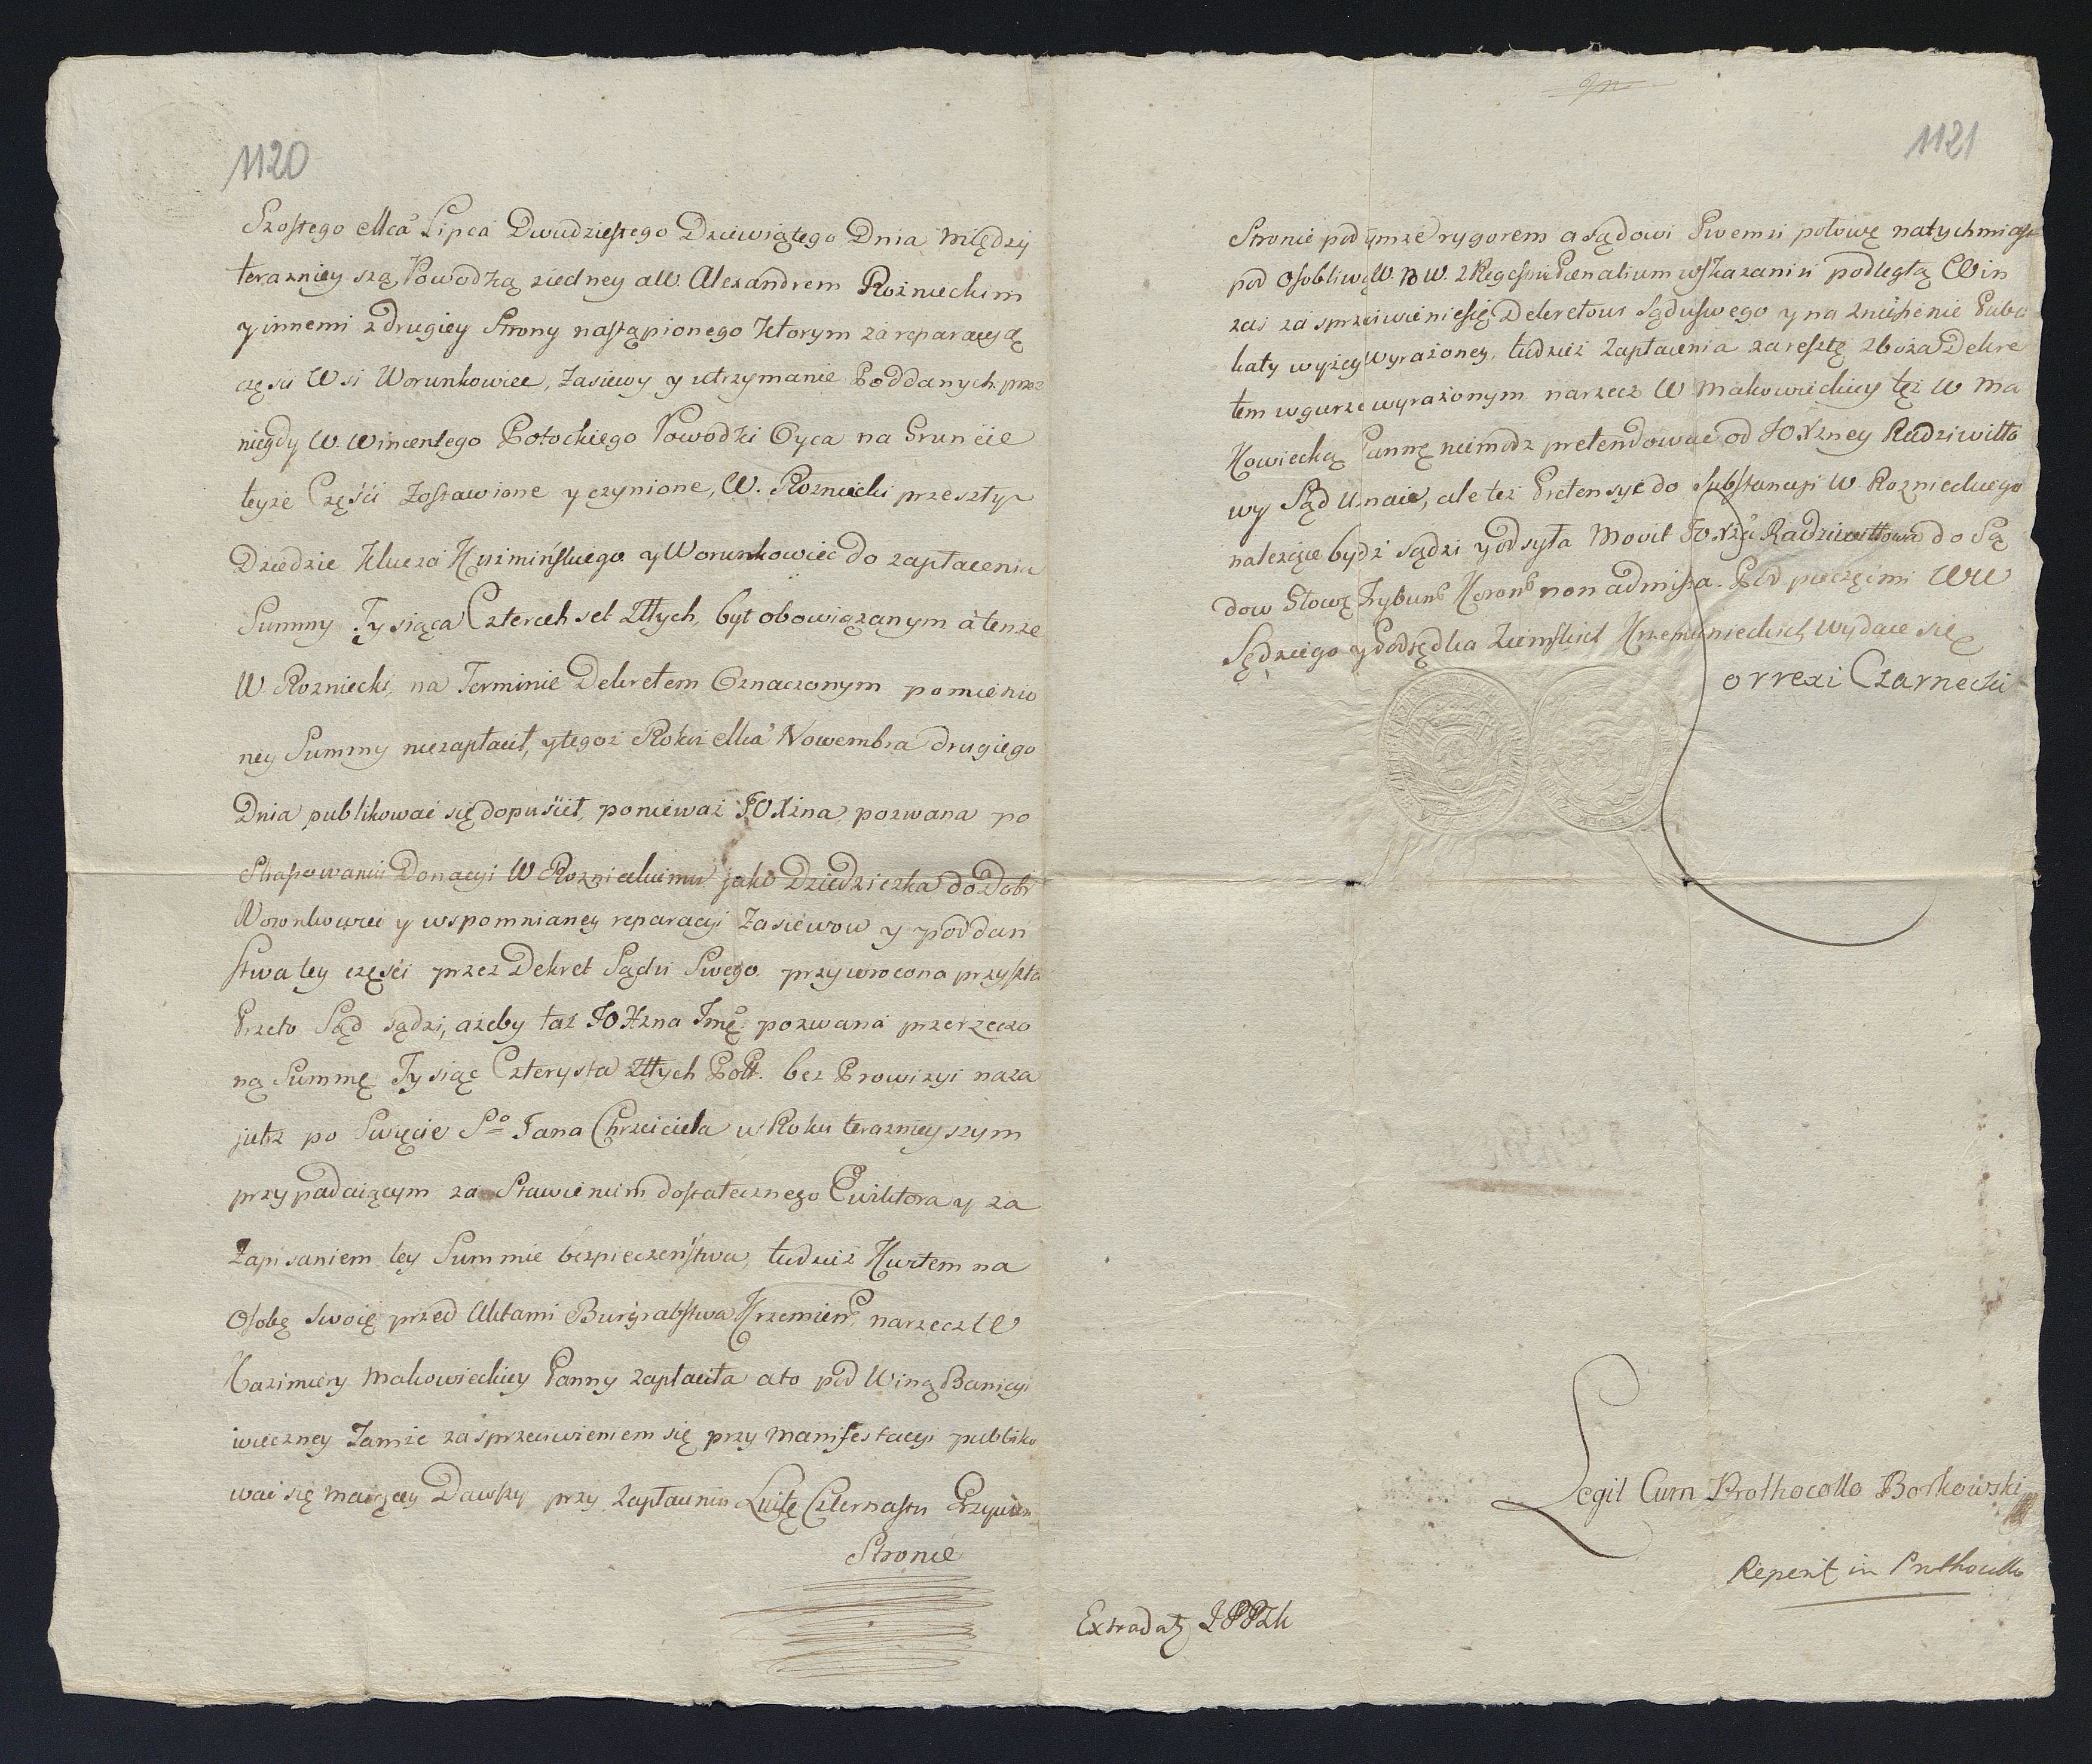 1120
Szostego Mca Lipca Dwudziestego Dziewiątego Dnia między
terazniey szą Powodką ziedney a W. Alexandrem Roznieckim
y innemi z drugiey Strony nastąpionego którym za reparacyą
częsci Wsi Worunkowiec, Zasiewy y utrzymanie Poddanych przez
niegdy W. Wincentego Potockiego Powodki Oyca na Gruncie
teyże Częśći zostawione y czynione, W. Rozniecki przeszły
Dziedzic Klucza Kuzmińskiego y Worunkowiec do zapłacenia
Summy Tysiąca Czterech set Złtych, był obowiązanym a tenże
W. Rozniecki, na Terminie Dekretem Oznaczonym pomienio
ney Summy niezapłacił, y tegoż Roku Mca Nowembra drugiego
Dnia publikować się dopuścił, ponieważ JOXżna pozwana po
Skassowaniu Donacyi W Roznieckiemu jako Dziedziczka do Dobr
Woronkowiec y wspomnianey reparacyi Zasiewow y poddan
stwa tey częśći przez Dekret Sądu Swego przywrocona przyszła
Przeto Sąd sądzi, ażeby taż JOXżna Jmć pozwana przerzeczo
ną Summę Tysiąc Czterysta Złtych Pol. bez Prowizyi naza
jutrz po Swięcie So Jana Chrzciciela w Roku teraznieyszym
przypadaiącym za Stawieniem dostatecznego Ewiktora y za
Zapisaniem tey Summie bezpieczeństwa, tudzież Kwitem na
Osobę swoię przed Aktami Burgrabstwa Krzemien. narzecz W
Kazimiery Makowieckiey Panny zapłaciła a to pod Winą Banicyi
wieczney Tamże za sprzeciwieniem się przy manifestacyi publiko
wać się maiącey Dawszy przy Zapłaceniu Luitę Czternastu Grzywien
Stronie
1121
Stronie pod tymże rygorem a Sądowi Swemu połowę natychmiast
pod Osobliwą W. 10 W. z Regestru Poenalium wskazaniu podległą Win
zaś za sprzeciwienie się Dekretowi Sądu swego y na zniesienie Publi
katy wyżey wyrażoney, tudzież Zapłacenia za resztę zboża Dekre
tem wgurze wyrażonym narzecz W Makowieckiey też W Ma
kowiecką Pannę niemodz pretendować od JOXżney Radziwiłło
wy Sąd Unaie, ale też Pretensye do Substancyi W. Roznieckiego
należące bydź sądzi y odsyła Movit JOXżna Radziwiłłowa do Są
dow Głow Trybun Koron non admissa. Pod pieczęćmi WW
Sędziego y Podsędka Ziemskich Krzemienieckich wydaie się
orrexi Czarnecki
Legit Cum Prothocollo Borkowski
Reperit in Prothocollo
Extradat